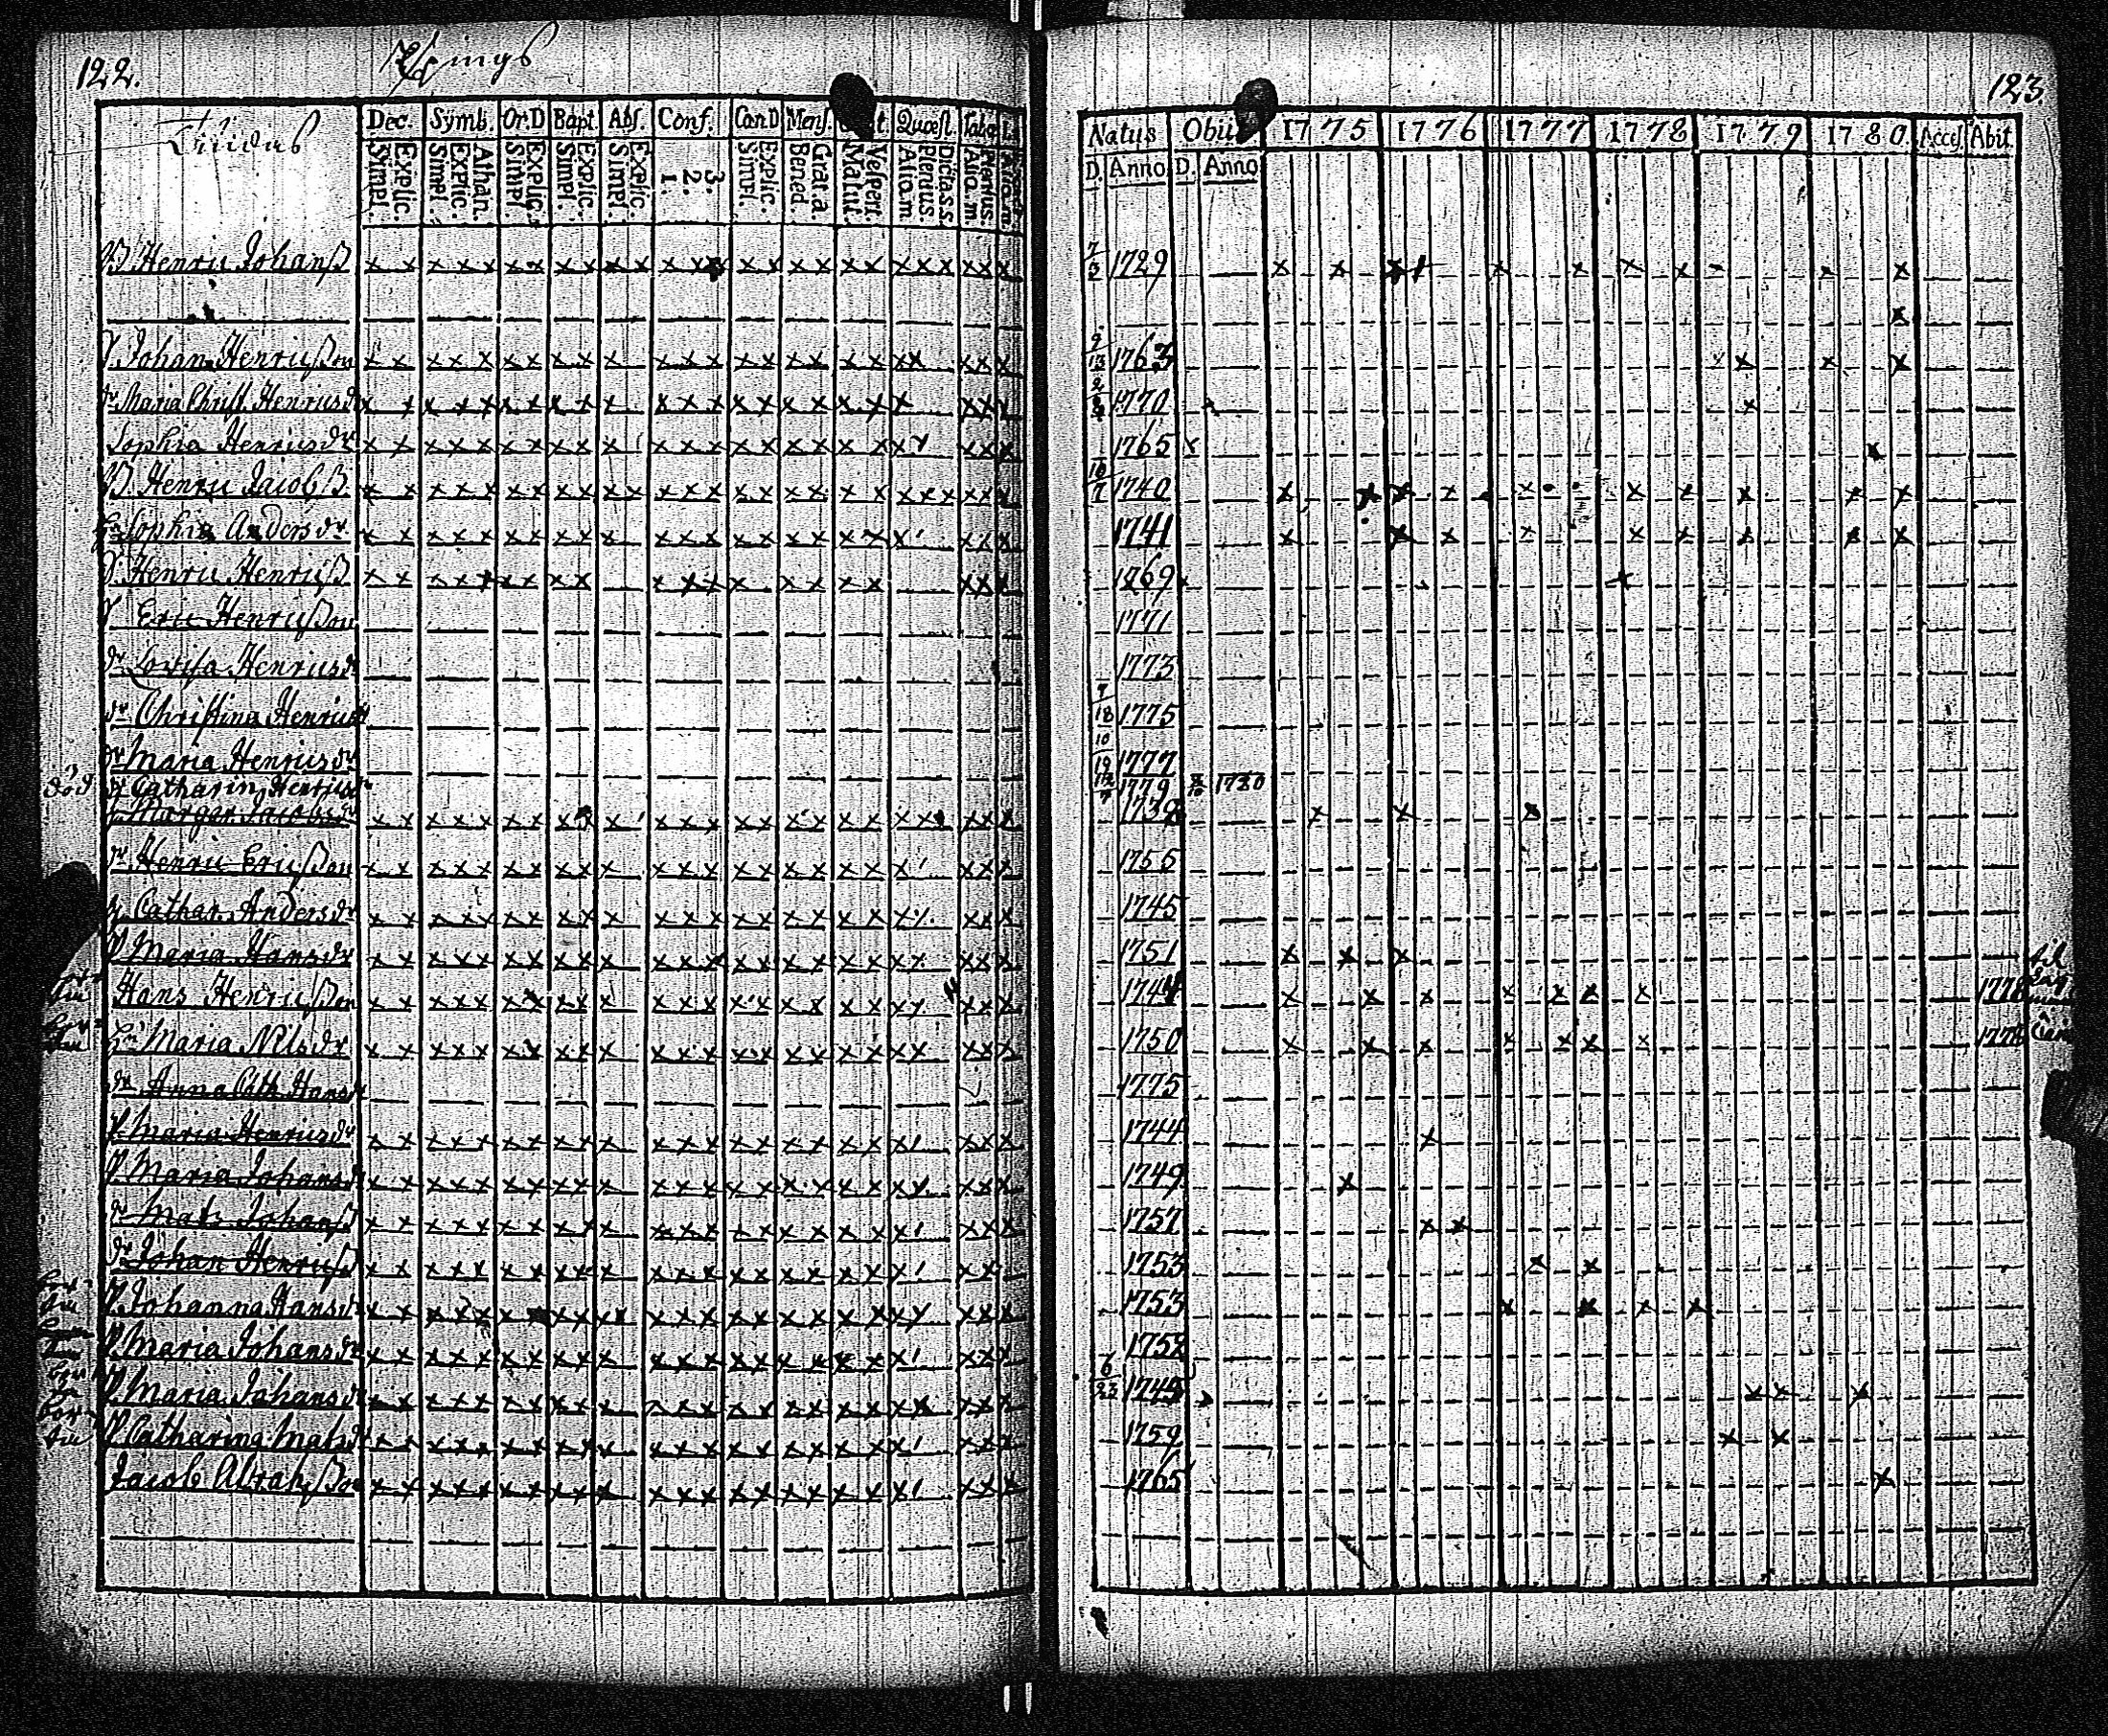 122.
Dec. Symb. Or.D Bapt. Abs. Conf. Cœn.D Mens. Quæst. Tabo
Explic. Simpl. Athan. Explic. Simpl. Explic. Simpl. Explic. Simpl. Explic. Simpl. 3. 2. 1. Explic. Simpl. Grat.a Bened. Vesper. Matut. Dicta.s.s. Plenius. Aliq.m. Plenius. Aliq.m.
Henric Johanß
Johan Henricßon
dr Maria Christ. Henricsdr
Sophia Henricsdr
Henric Jacobß.
Sophia Andersdr
Henric Henricß
Eric Henricßon
dr Lovisa Henricsdr
dr Christina Henricsdr
dr Maria Henricsdr
död dr Catharin Henricsdr
Margar. Jacobsdr
dr Henric Ericßon
Cathar. Andersdr
Maria Hansdr
Hans Henricßon
Maria Nilsdr
dr Anna Cath. Hansdr
Maria Henricsdr
Maria Johansdr
dr Mats Johanß
dr Johan Henricß
Johanna Hansdr
Maria Johansdr
Maria Johansdr
Catharina Matsdr
Jacob Abrahßon
123.
Natus Obiit 1775 1776 1777 1778 1779 1780 Acces. Abit.
D. Anno D. Anno
7/3 1729
9/13 1763
1770
1765
10/7 1740
1741
1769
1771
1773
7/18 1775
10/19 1777
1779 1780
1738
1755
1745
1751
1744 1778
1750 1778
1775
1744
1749
1757
1753
1753
1752
6/22 1745
1759
1765